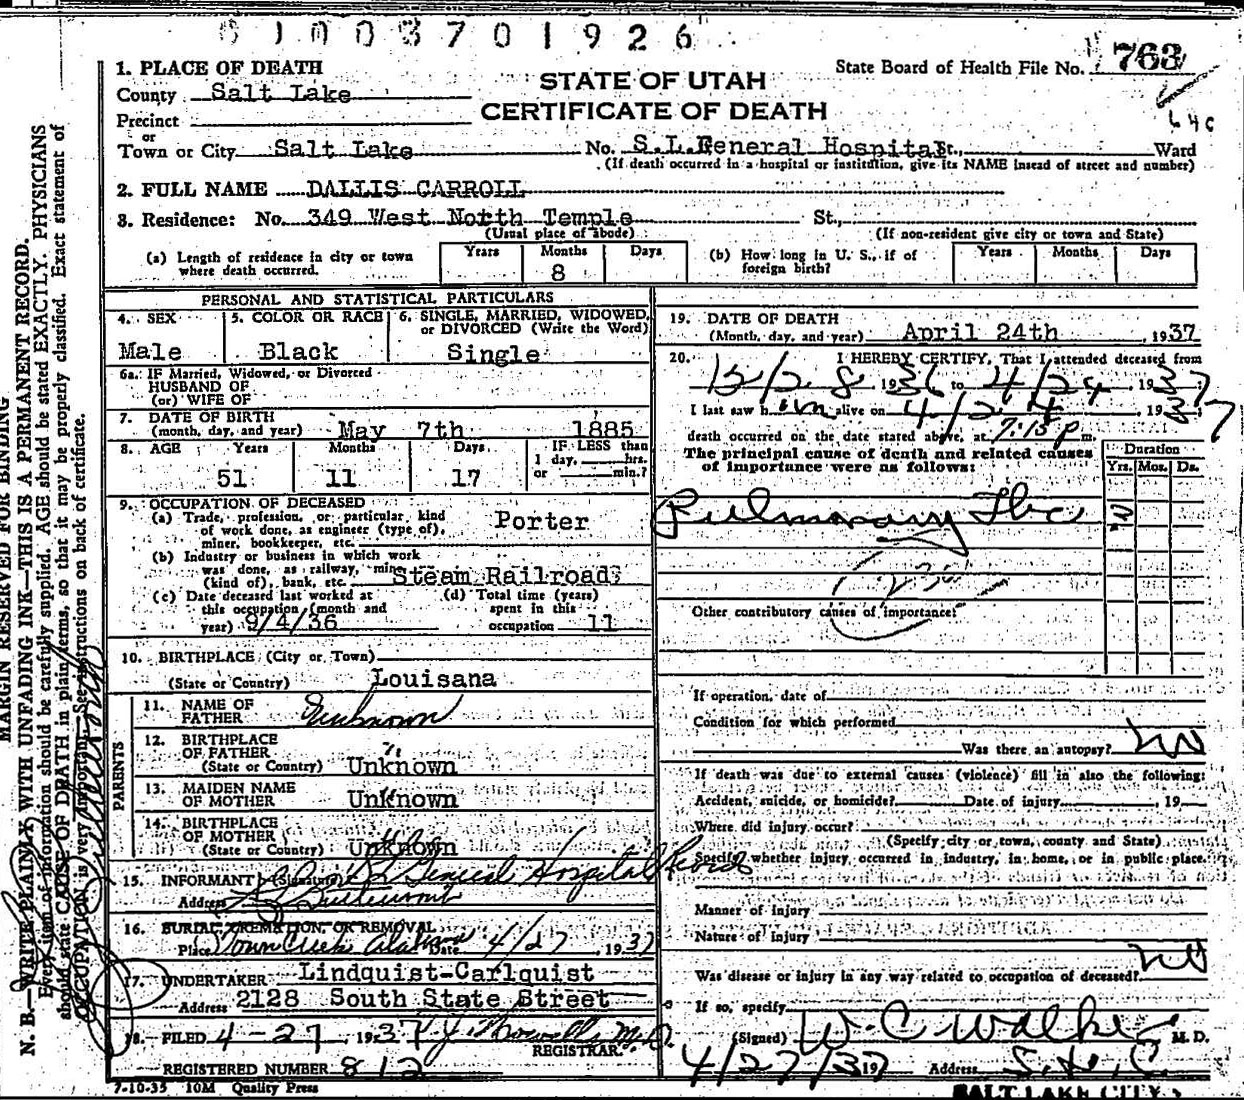 01003701926
State Board of Health File No. 763
64c
STATE OF UTAH
CERTIFICATE OF DEATH
1. PLACE OF DEATH
County Salt Lake
Precinct
or
Town or City Salt Lake No. S.L.General Hospital St., Ward
(If death occurred in a hospital or institution, give its NAME instead of street and number)
2. FULL NAME DALLIS CARROLL
3. Residence: No. 349 West North Temple St.,
(Usual place of abode) (If non-resident give city or town and State)
(a) Length of residence in city or town where death occurred. Years Months 8 Days
(b) How long in U. S., if of foreign birth? Years Months Days
PERSONAL AND STATISTICAL PARTICULARS
4. SEX Male
5. COLOR OR RACE Black
6. SINGLE, MARRIED, WIDOWED, or DIVORCED (Write the Word) Single
6a. IF Married, Widowed, or Divorced
HUSBAND OF
(or) WIFE OF
7. DATE OF BIRTH
(month, day, and year) May 7th 1885
8. AGE Years 51 Months 11 Days 17 IF LESS than 1 day, hrs. or min.?
9. OCCUPATION OF DECEASED
(a) Trade, profession, or particular kind
of work done, as engineer (type of),
miner, bookkeeper, etc. Porter
(b) Industry or business in which work
was done, as railway, mine
(kind of), bank, etc. Steam Railroad
(c) Date deceased last worked at
this occupation (month and
year) 9/4/36
(d) Total time (years)
spent in this
occupation 11
10. BIRTHPLACE (City or Town)
(State or Country) Louisana
PARENTS
11. NAME OF FATHER Unknown
12. BIRTHPLACE OF FATHER
(State or Country) Unknown
13. MAIDEN NAME OF MOTHER Unknown
14. BIRTHPLACE OF MOTHER
(State or Country) Unknown
15. INFORMANT (Signature) General Hospital Records
Address
16. BURIAL, CREMATION, OR REMOVAL
Place Town Creek Alabama Date 4/27, 1937
17. UNDERTAKER Lindquist-Carlquist
Address 2128 South State Street
18. FILED 4-27, 1937 M.D.
REGISTRAR.
REGISTERED NUMBER 812
7-10-35 10M Quality Press
19. DATE OF DEATH
(Month, day, and year) April 24th, 1937
20. I HEREBY CERTIFY, That I attended deceased from
1936 to 4/24, 1937
I last saw him alive on 4/24, 1937
death occurred on the date stated above, at 7:15 p m.
The principal cause of death and related causes
of importance were as follows:
Duration
Yrs. Mos. Ds.
Pulmonary Tbc
23
Other contributory causes of importance:
If operation, date of
Condition for which performed
Was there an autopsy? no
If death was due to external causes (violence) fill in also the following:
Accident, suicide, or homicide? Date of injury, 19
Where did injury occur?
(Specify city or town, county and State)
Specify whether injury occurred in industry, in home, or in public place.
Manner of injury
Nature of injury
Was disease or injury in any way related to occupation of deceased? no
If so, specify
(Signed) W C Walker M. D.
4/27/37 19 Address S. L. C.
SALT LAKE CITY
MARGIN RESERVED FOR BINDING
N. B.—WRITE PLAINLY WITH UNFADING INK—THIS IS A PERMANENT RECORD.
Every item of information should be carefully supplied. AGE should be stated EXACTLY. PHYSICIANS
should state CAUSE OF DEATH in plain terms, so that it may be properly classified. Exact statement of
OCCUPATION is very important. See instructions on back of certificate.